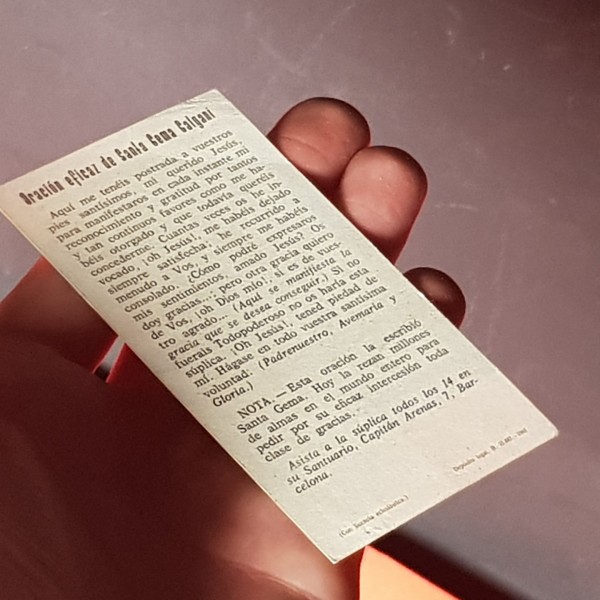 Oración eficaz de Santa Gema Galgani
Aquí me tenéis postrada a vuestros
pies santísimos, mi querido Jesús,
para manifestaros en cada instante mi
reconocimiento y gratitud por tantos
y tan continuos favores como me ha-
béis otorgado y que todavía queréis
concederme. Cuantas veces os he in-
vocado, ¡oh Jesús!, me habéis dejado
siempre satisfecha; he recurrido a
menudo a Vos, y siempre me habéis
consolado. ¿Cómo podré expresaros
mis sentimientos, amado Jesús? Os
doy gracias...; pero otra gracia quiero
de Vos, ¡oh Dios mío!, si es de vues-
tro agrado... (Aquí se manifiesta la
gracia que se desea conseguir.) Si no
fuerais Todopoderoso no os haría esta
súplica. ¡Oh Jesús!, tened piedad de
mí. Hágase en todo vuestra santísima
voluntad. (Padrenuestro, Avemaría y
Gloria.)
NOTA.—Esta oración la escribió
Santa Gema. Hoy la rezan millones
de almas en el mundo entero para
pedir por su eficaz intercesión toda
clase de gracias.
Asista a la súplica todos los 14 en
su Santuario, Capitán Arenas, 7, Bar-
celona.
(Con licencia eclesiástica.)
Depósito legal. B.